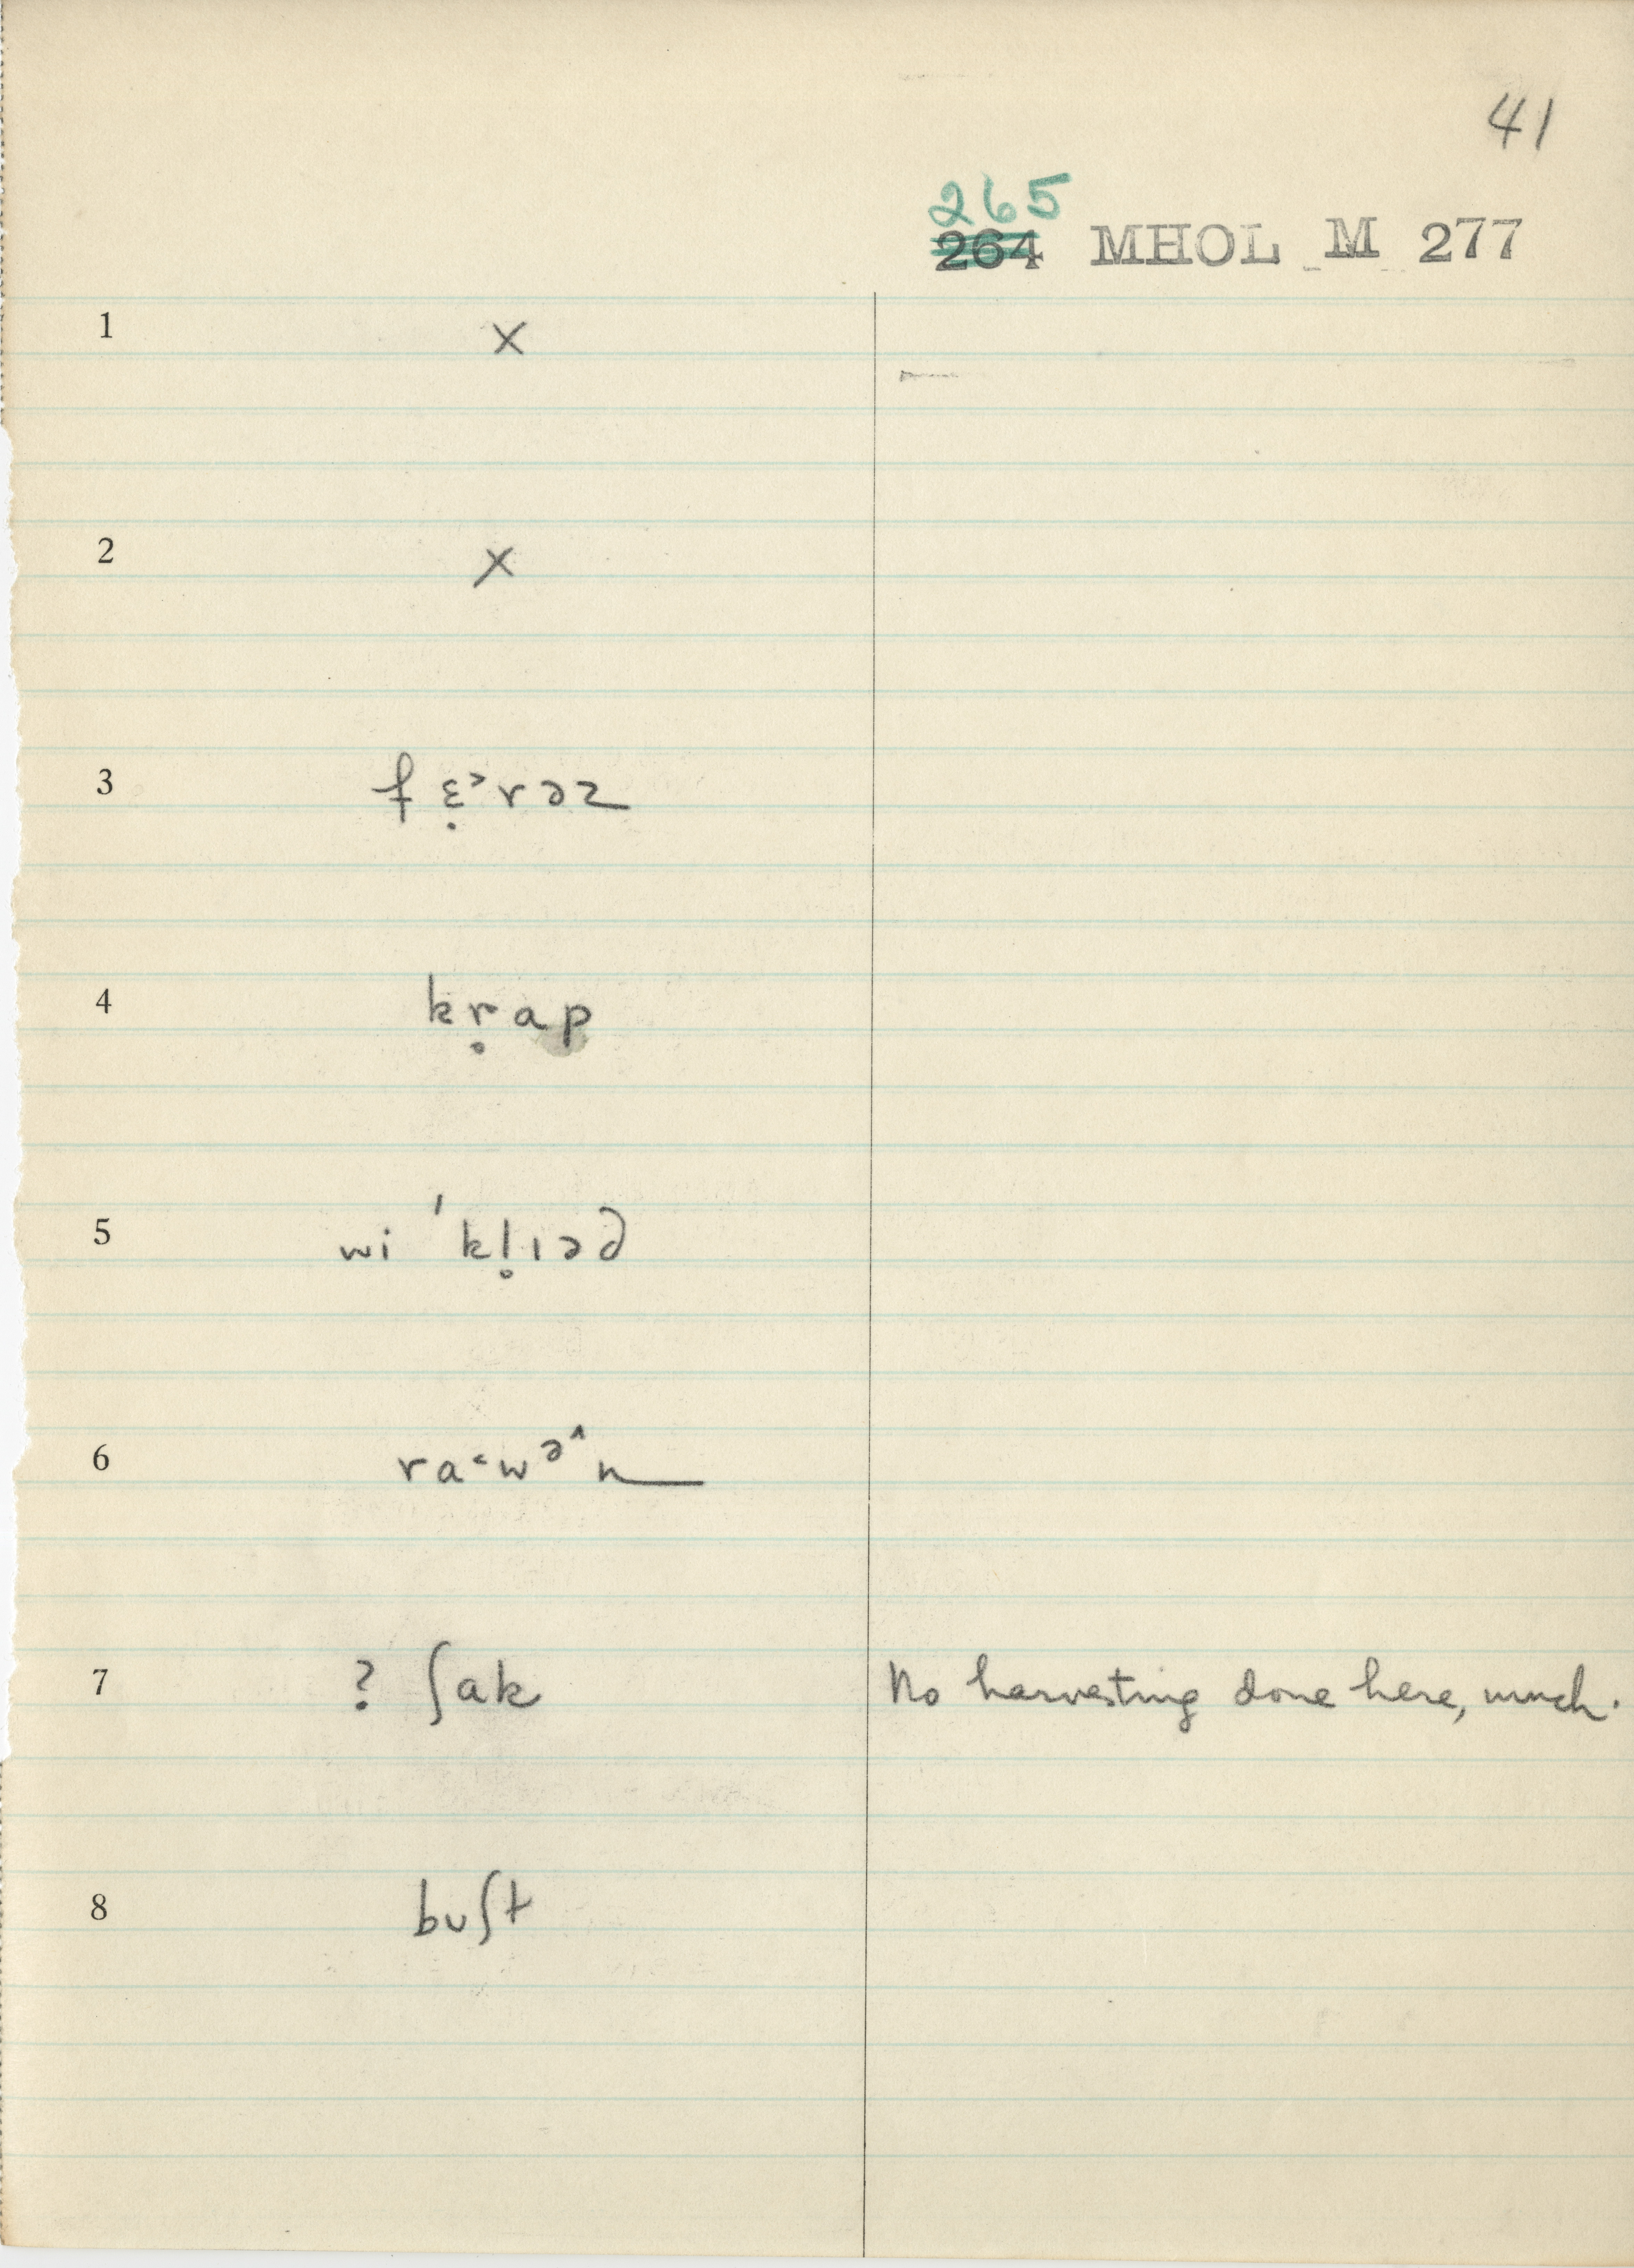 41
265
264 MHOL M 277
1 x
2 x
3 fɛ̣˃rəz
4 kr̥ap
5 wi ˈkl̥ɪəd
6 ra˂wə˄n
7 ? ʃak No harvesting done here, much.
8 buʃt